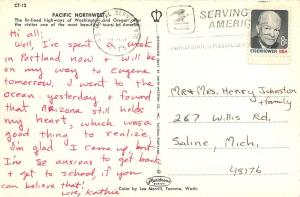 CT-12
PACIFIC NORTHWEST
The fir-lined highways of Washington and Oregon offer
the visitor one of the most beautiful drives in all America.
Hi all!
Well, I've spent a week
in Portland now + will be
on my way to Eugene
tomorrow. I went to the
ocean yesterday + found
that Arizona still holds
my heart, which was a
good thing to realize,
I'm glad I came up, but
I'm so anxious to get back
+ get to school, if you
can believe that!
Love, Kathie
Color by Lee Merrill, Tacoma, Wash.
SERVING
AMERICA
EISENHOWER USA
8c
Mr + Mrs. Henry Johnston
+ family
267 Willis Rd.
Saline, Mich.
48176